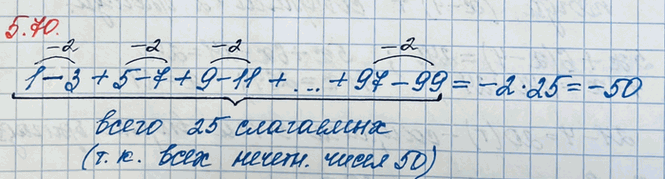 5.70.
-2 -2 -2 -2
1-3 + 5-7 + 9-11 + ... + 97-99 = -2·25 = -50
всего 25 слагаемых
(т.к. всех нечетн. чисел 50)